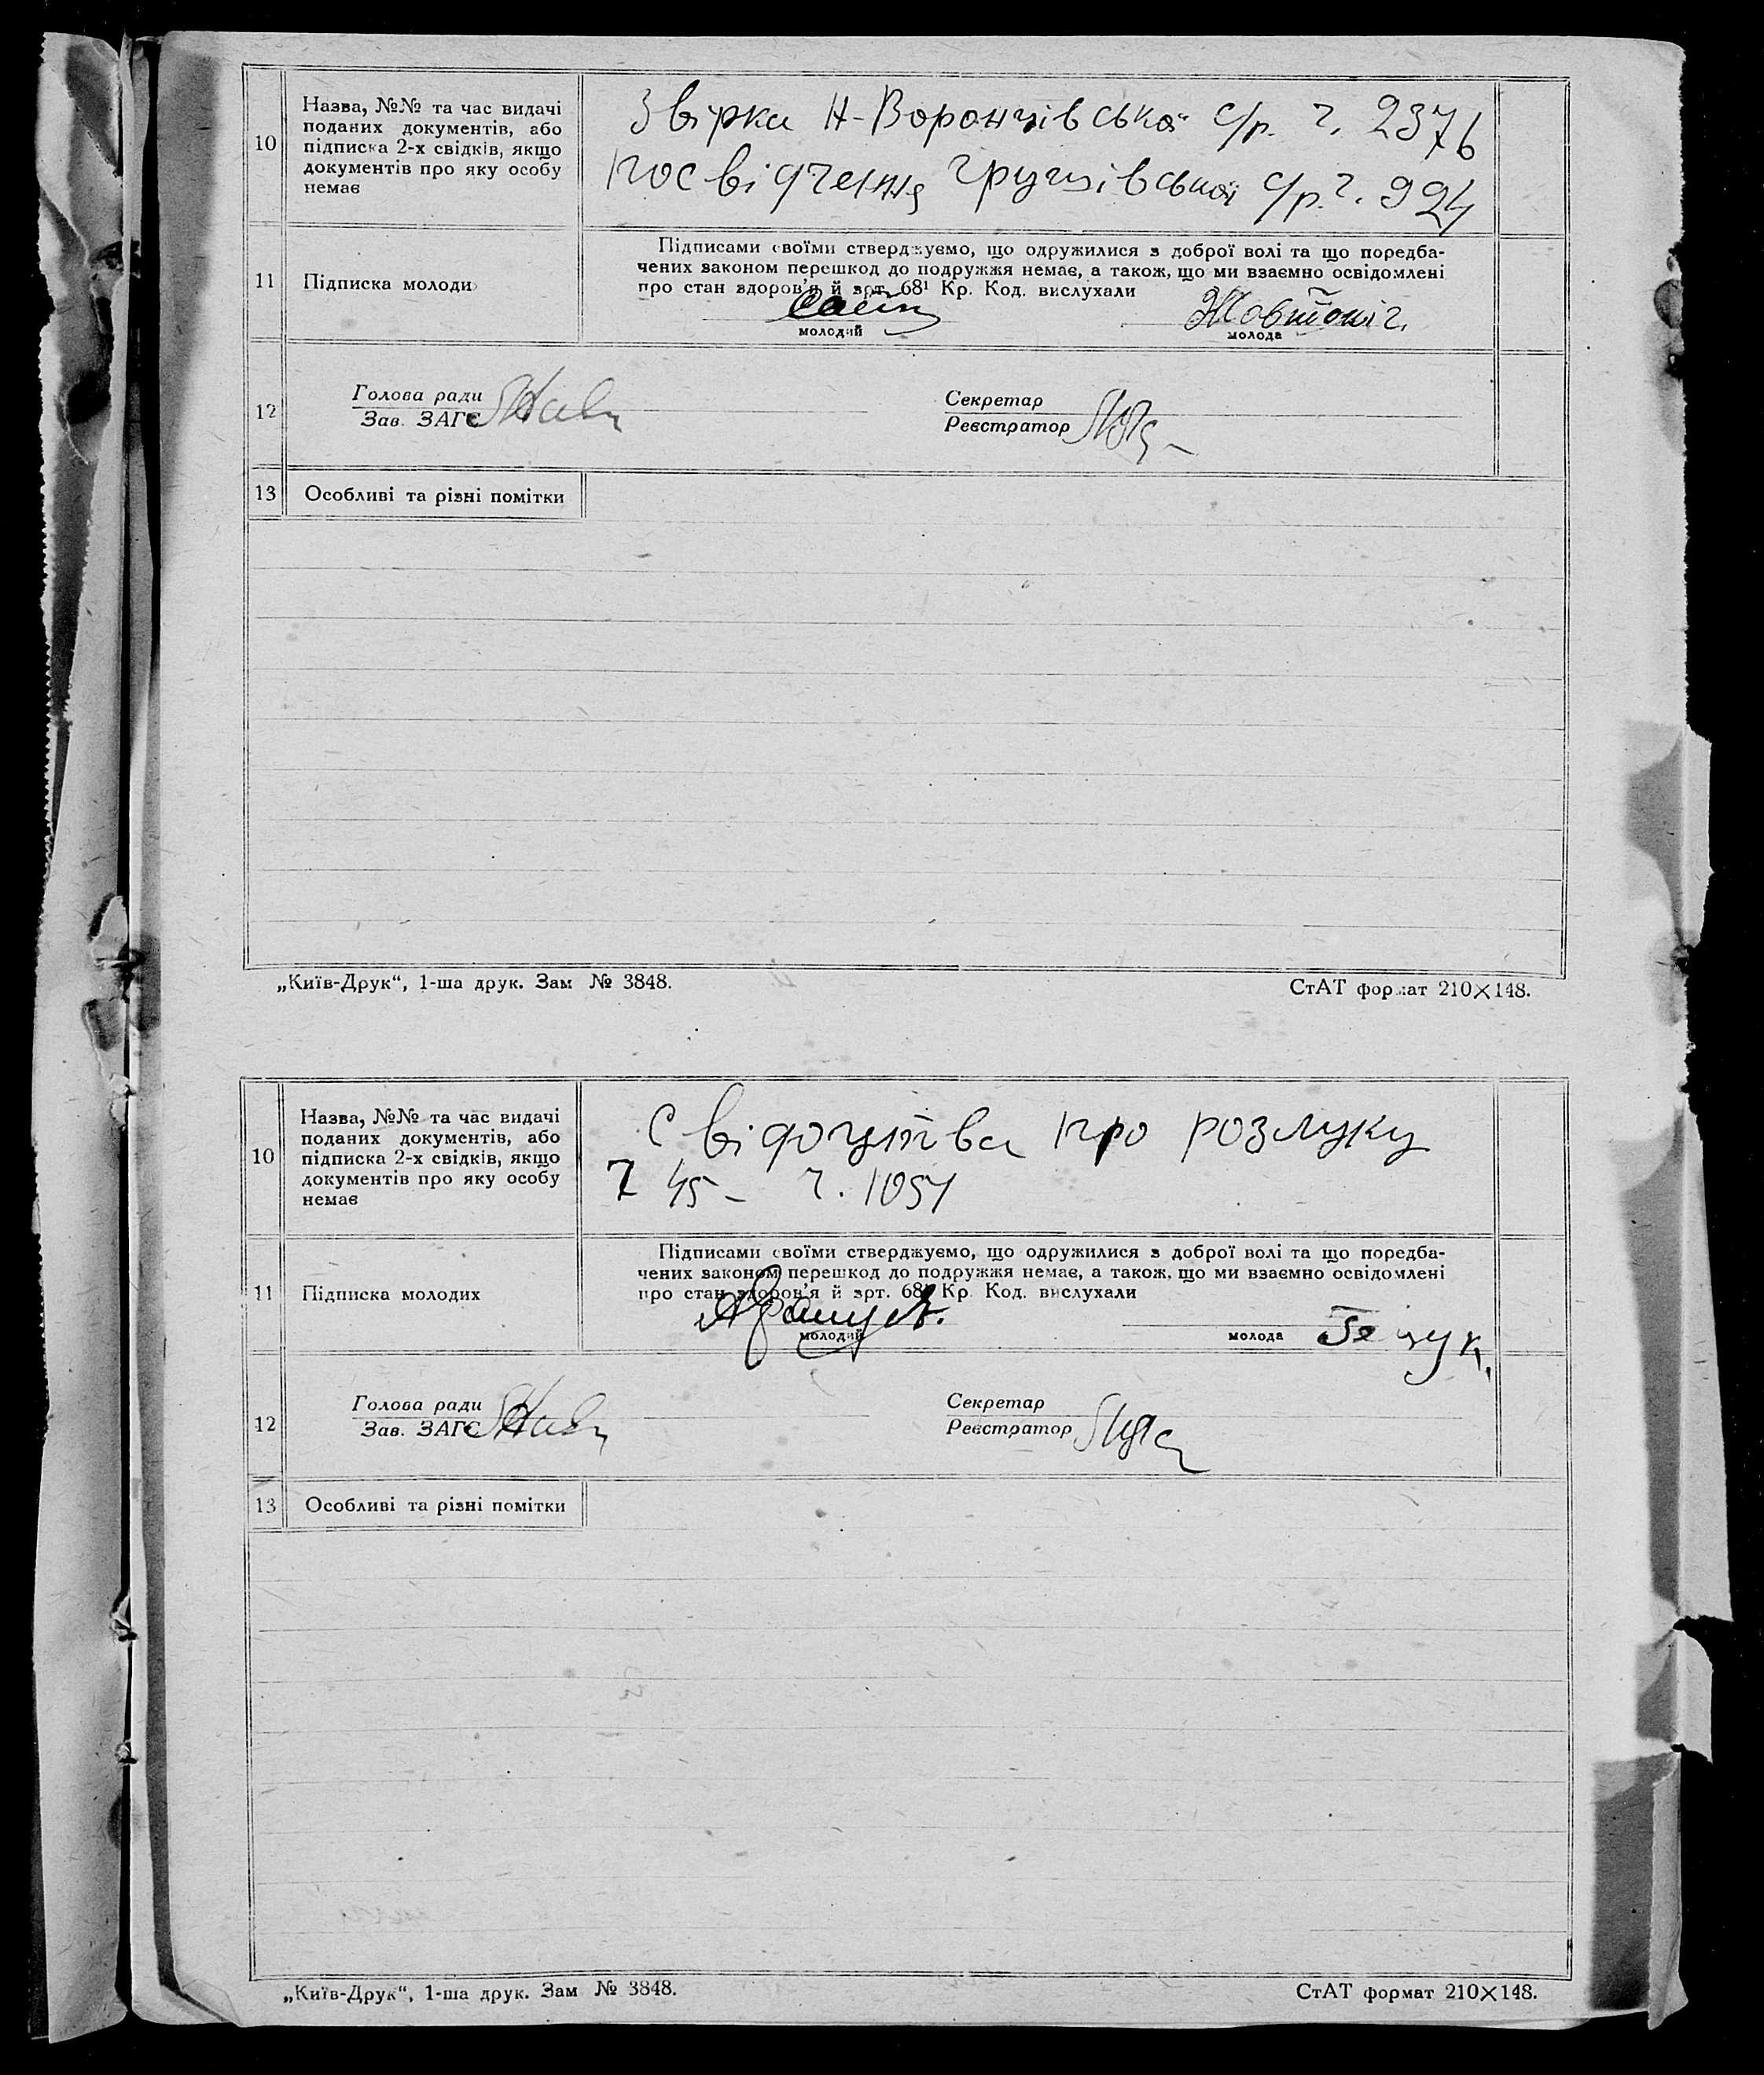 10
Назва, №№ та час видачі
поданих документів, або
підписка 2-х свідків, якщо
документів про яку особу
немає
Звірка Н-Воронцівської с/р. ч. 2376
Посвідчення Грушівської с/р. ч. 924
11
Підписка молоди
Підписами своїми стверджуємо, що одружилися з доброї волі та що поредба-
чених законом перешкод до подружжя немає, а також, що ми взаємно освідомлені
про стан здоров'я й зрт. 68¹ Кр. Код. вислухали
молодий
молода
12
Голова ради
Зав. ЗАГС
Секретар
Реєстратор
13
Особливі та різні помітки
„Київ-Друк“, 1-ша друк. Зам № 3848.
СтАТ формат 210×148.
10
Назва, №№ та час видачі
поданих документів, або
підписка 2-х свідків, якщо
документів про яку особу
немає
Свідоцтва про розлуку
ч. 1051
11
Підписка молодих
Підписами своїми стверджуємо, що одружилися з доброї волі та що поредба-
чених законом перешкод до подружжя немає, а також, що ми взаємно освідомлені
про стан здоров'я й зрт. 68¹ Кр. Код. вислухали
молодий
молода
12
Голова ради
Зав. ЗАГС
Секретар
Реєстратор
13
Особливі та різні помітки
„Київ-Друк“, 1-ша друк. Зам № 3848.
СтАТ формат 210×148.